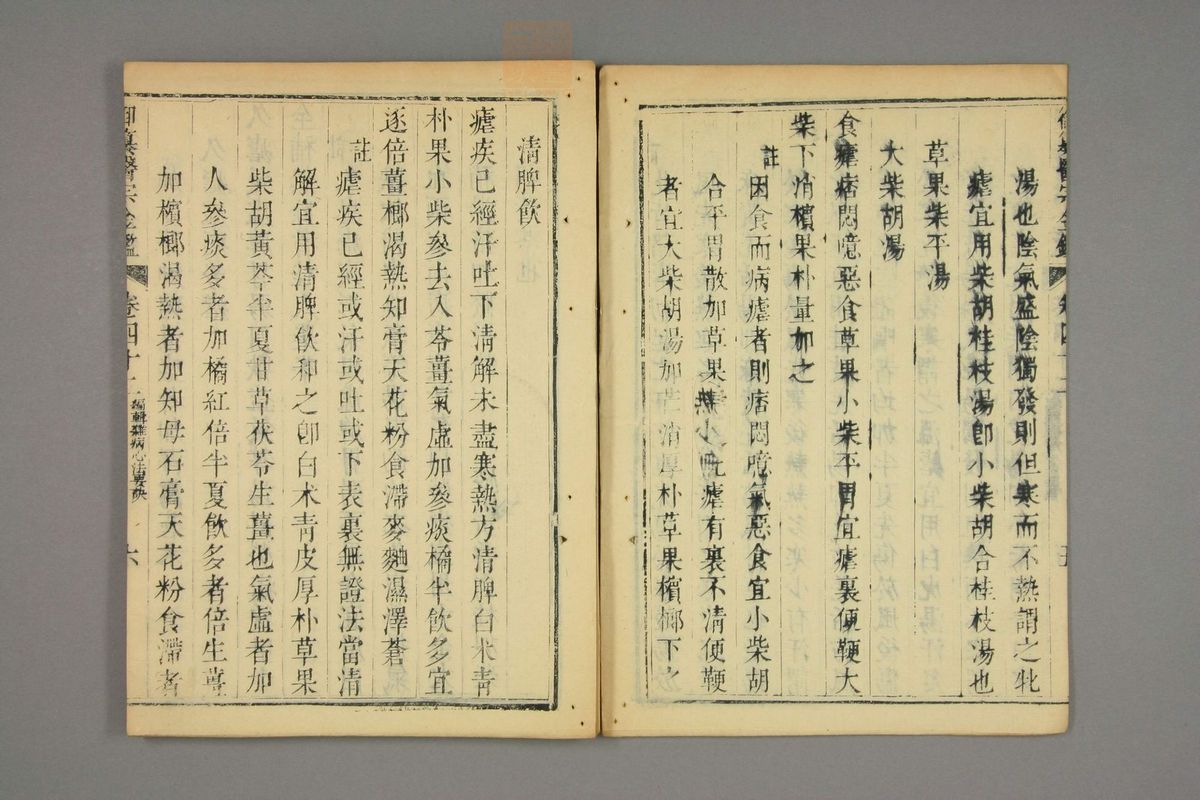 湯也陰氣盛陰獨發則但寒而不熱謂之牝
瘧宜用柴胡桂枝湯卽小柴胡合桂枝湯也
草果柴平湯
大柴胡湯
食瘧痞悶噫惡食草果小柴平胃宜瘧裏便鞕大
柴下消檳果朴量加之
註 因食而病瘧者則痞悶噫氣惡食宜小柴胡
合平胃散加草果瘧有裏不清便鞕
者宜大柴胡湯加芒消厚朴草果檳榔下之
清脾飮
瘧疾已經汗吐下清解未盡寒熱方清脾白朮靑
朴果小柴參去入苓薑氣虛加參痰橘半飮多宜
逐倍薑榔渴熱知膏天花粉食滯麥麯濕澤蒼
註 瘧疾已經或汗或吐或下表裏無證法當清
解宜用清脾飮和之卽白朮靑皮厚朴草果
柴胡黃芩半夏甘草茯苓生薑也氣虛者加
人參痰多者加橘紅倍半夏飮多者倍生薑
加檳榔渴熱者加知母石膏天花粉食滯者
御纂醫宗金鑑 卷四十二 編輯雜病心法要訣 六